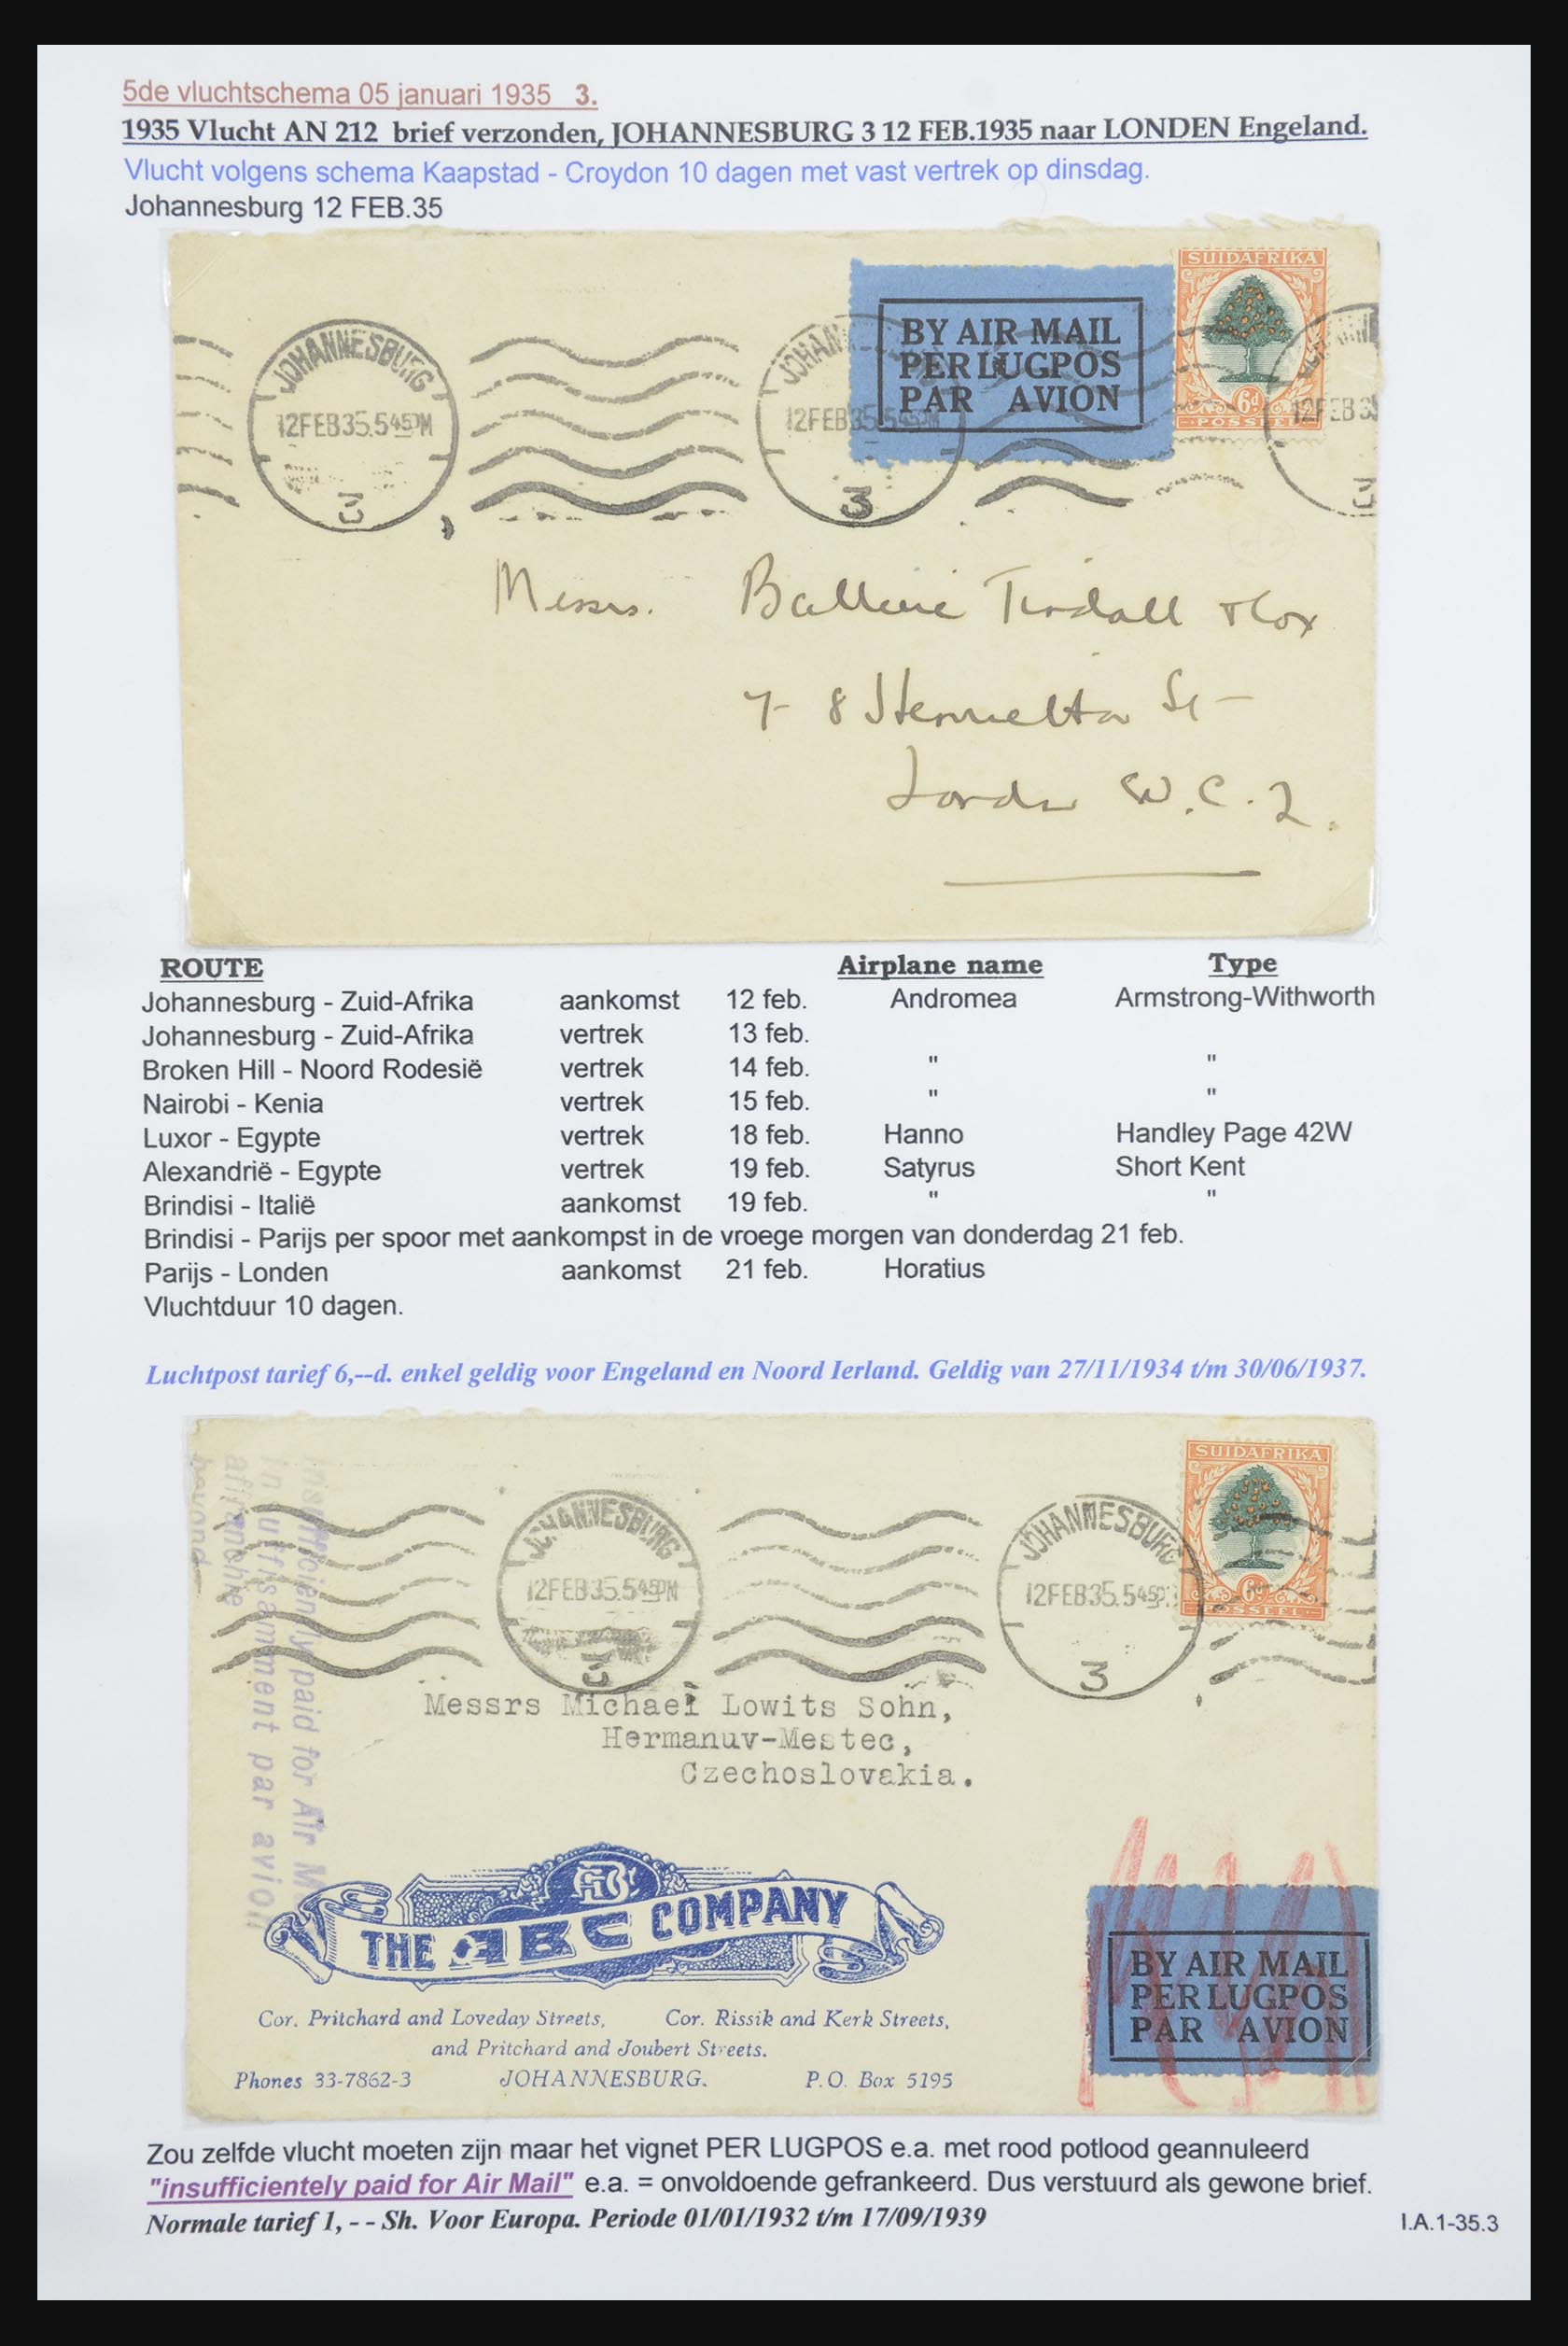 5de vluchtschema 05 januari 1935 3.
1935 Vlucht AN 212 brief verzonden, JOHANNESBURG 3 12 FEB.1935 naar LONDEN Engeland.
Vlucht volgens schema Kaapstad - Croydon 10 dagen met vast vertrek op dinsdag.
Johannesburg 12 FEB.35
SUIDAFRIKA
6d
POSSEEL
BY AIR MAIL
PER LUGPOS
PAR AVION
JOHANNESBURG
12FEB35.545PM
3
JOHAN
12FEB35.545PM
3
12FEB3
3
Messrs. Tindall & Cox
7-8 Henrietta St
London W.C.2.
ROUTE Airplane name Type
Johannesburg - Zuid-Afrika aankomst 12 feb. Andromea Armstrong-Withworth
Johannesburg - Zuid-Afrika vertrek 13 feb.
Broken Hill - Noord Rodesië vertrek 14 feb. " "
Nairobi - Kenia vertrek 15 feb. " "
Luxor - Egypte vertrek 18 feb. Hanno Handley Page 42W
Alexandrië - Egypte vertrek 19 feb. Satyrus Short Kent
Brindisi - Italië aankomst 19 feb. " "
Brindisi - Parijs per spoor met aankompst in de vroege morgen van donderdag 21 feb.
Parijs - Londen aankomst 21 feb. Horatius
Vluchtduur 10 dagen.
Luchtpost tarief 6,--d. enkel geldig voor Engeland en Noord Ierland. Geldig van 27/11/1934 t/m 30/06/1937.
SUIDAFRIKA
6d
POSSEEL
JOHANNESBURG
12FEB35.545PM
3
JOHANNESBURG
12FEB35.545P
3
insufficienly paid for Air M
insuffisamment par avion
affranchie
beyond
Messrs Michael Lowits Sohn,
Hermanuv-Mestec,
Czechoslovakia.
THE ABC COMPANY
Cor. Pritchard and Loveday Streets, Cor. Rissik and Kerk Streets,
and Pritchard and Joubert Streets.
Phones 33-7862-3 JOHANNESBURG. P.O. Box 5195
BY AIR MAIL
PER LUGPOS
PAR AVION
Zou zelfde vlucht moeten zijn maar het vignet PER LUGPOS e.a. met rood potlood geannuleerd
"insufficientely paid for Air Mail" e.a. = onvoldoende gefrankeerd. Dus verstuurd als gewone brief.
Normale tarief 1, - - Sh. Voor Europa. Periode 01/01/1932 t/m 17/09/1939
I.A.1-35.3